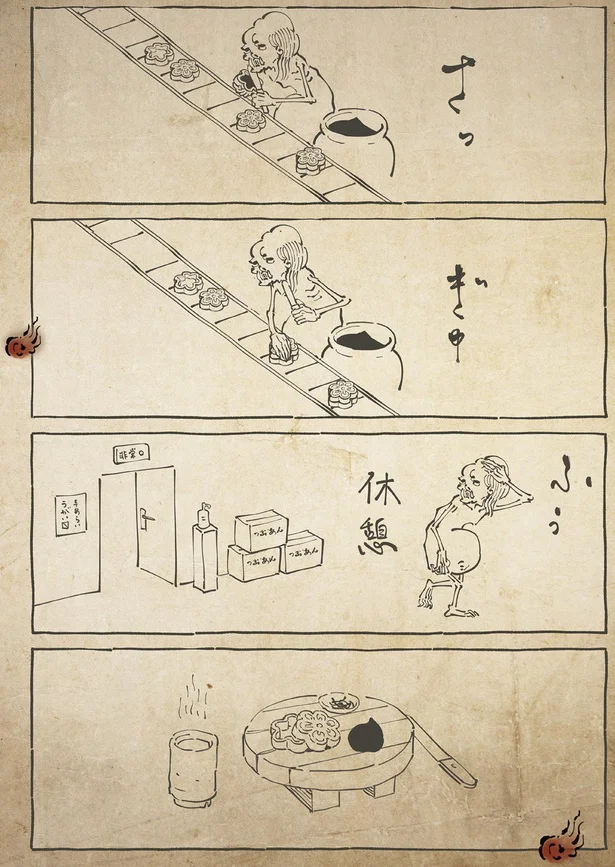 さっ
ぎゅ
ふぅ
休憩
つぶあん
つぶあん
つぶあん
非常口
手あらい
うがい〼